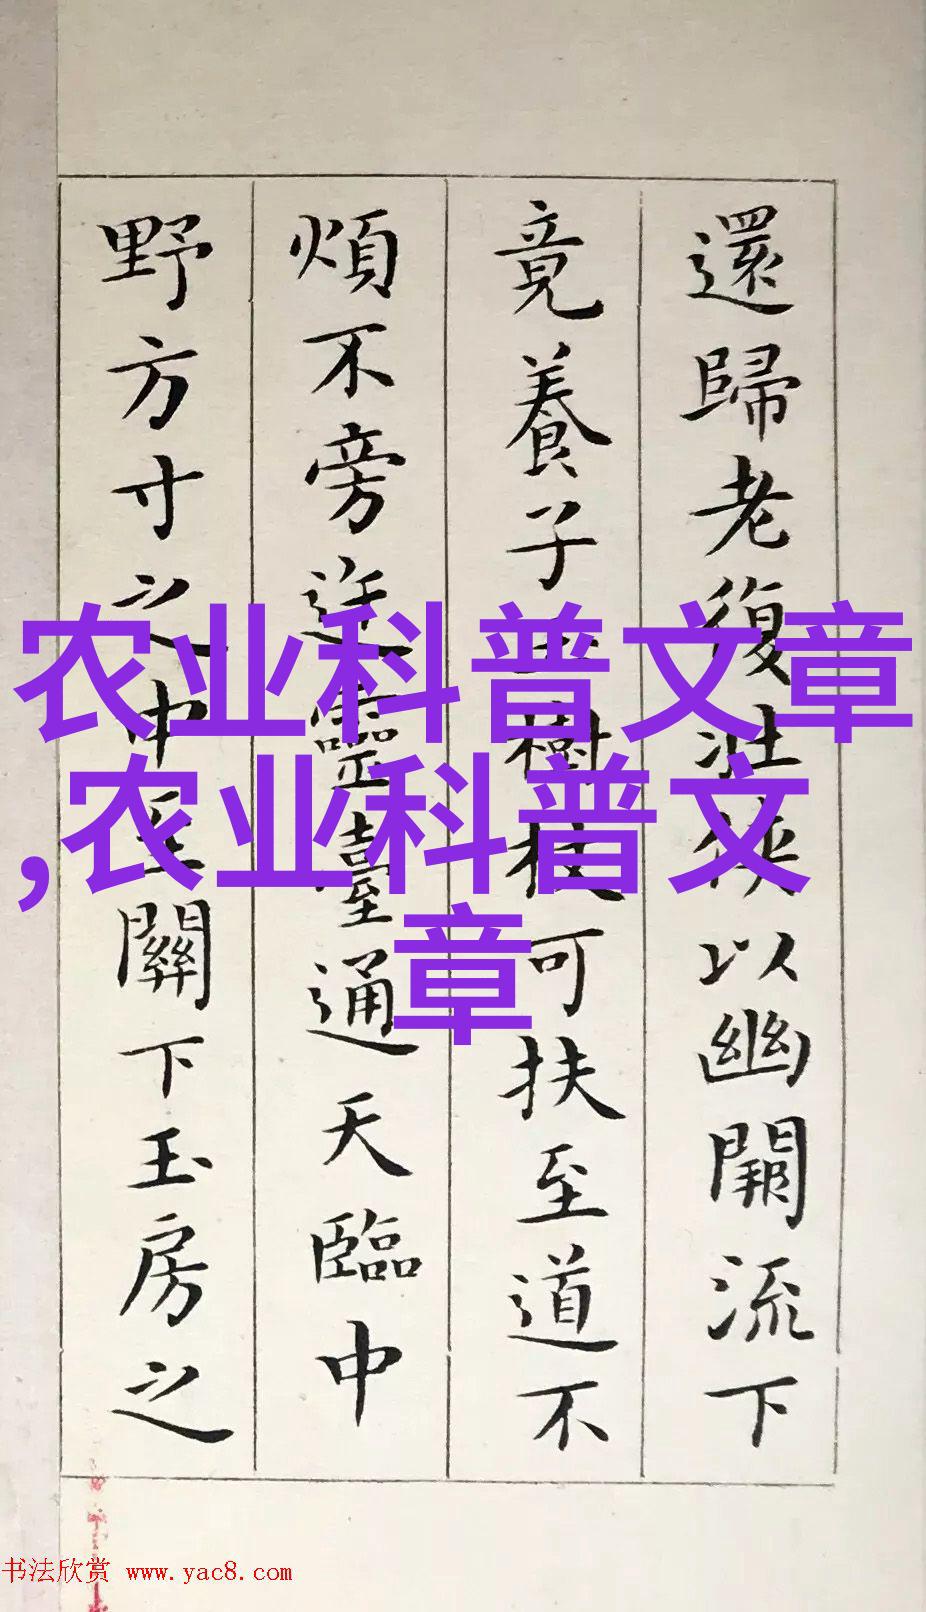 還歸老復壯俠以幽闕流下
竟養子玉樹杖可扶至道不
煩不旁迕靈臺通天臨中
野方寸之中至關下玉房之
农业科普文章
,农业科普文
章
书法欣赏 www.yac8.com